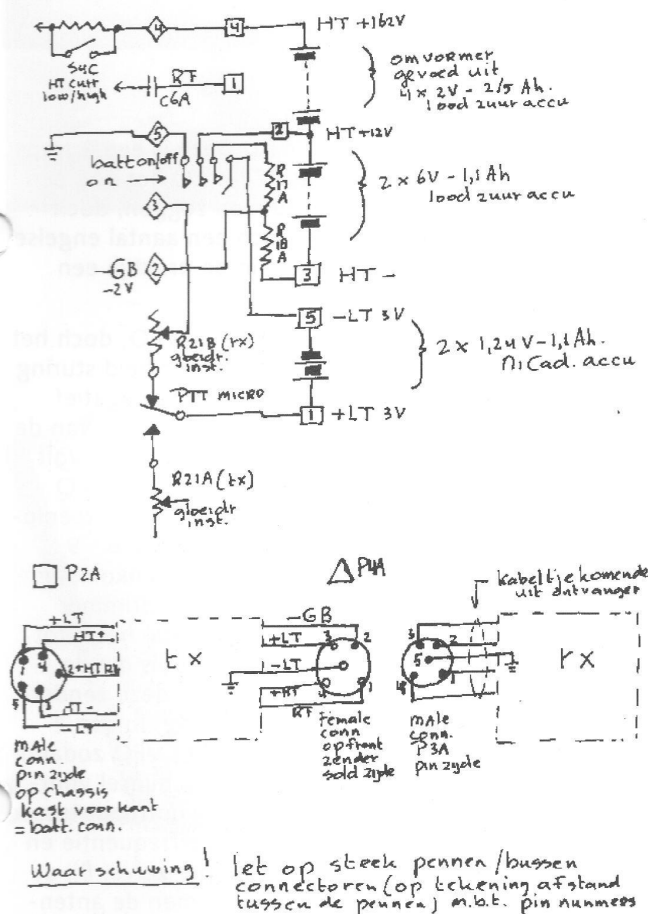 4
4
HT +162V
S4C
HT curr
low/high
RF
C6A
1
omvormer
gevoed uit
4 x 2V - 2/5 Ah.
lood zuur accu
5
2
HT+12V
batt on/off
on →
R
17
A
2 x 6V - 1,1 Ah
lood zuur accu
3
R
18
A
-GB
-2V
2
3
HT -
5
-LT 3V
R21B (rx)
gloeidr
inst.
2 x 1,24V - 1,1 Ah.
NiCad. accu
PTT MICRO
1
+LT 3V
R21A (tx)
gloeidr
inst.
P2A
P4A
kabeltje komende
uit ontvanger
+LT
HT+
1
4
2
+HT RX
5
3
HT -
-LT
tx
-GB
+LT
3
2
-LT
+HT
4
1
RF
3
2
5
1
4
rx
male
conn.
pin zijde
op chassis
kast voorkant
= batt. conn.
Female
conn
op front
zender
sold zijde
male
conn.
P3A
pin zijde
Waarschuwing !
let op steek pennen / bussen
connectoren (op tekening afstand
tussen de pennen) m.b.t. pin nummers